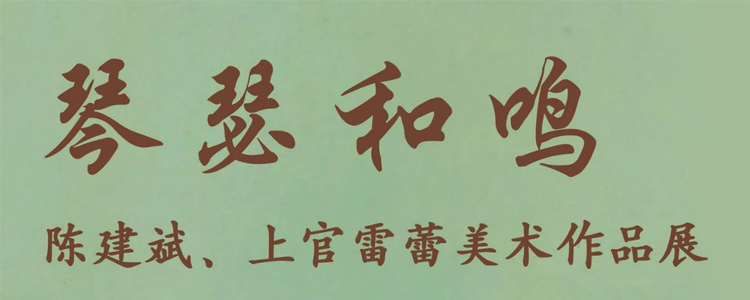 琴瑟和鸣
陈建斌、上官雷蕾美术作品展